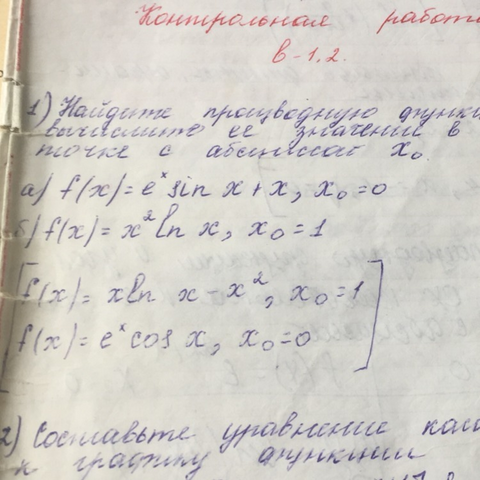 Контрольная работа
в-1,2.
1) Найдите производную функ
вычислите ее значении в
точке с абсциссой x₀.
а) f(x)=eˣsin x+x, x₀=0
б) f(x)=x²ln x, x₀=1
[f(x)=xln x-x², x₀=1
f(x)=eˣcos x, x₀=0]
2) Составьте уравнение кас
к графику функции